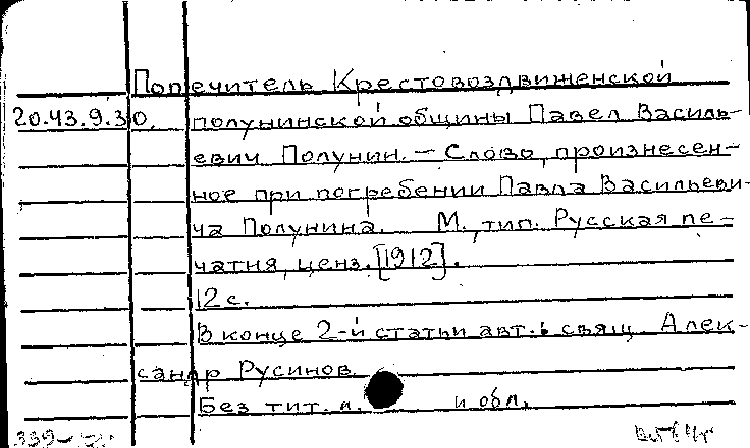 Попечитель Крестовоздвиженской
20.43.9.30. полунинской общины Павел Василь-
евич Полунин. – Слово, произнесен-
ное при погребении Павла Васильеви-
ча Полунина. М., тип. Русская пе-
чатня, ценз. [1912].
12 с.
В конце 2-й статьи авт.: свящ. Алек-
сандр Русинов.
Без тит. л. и обл.
339-